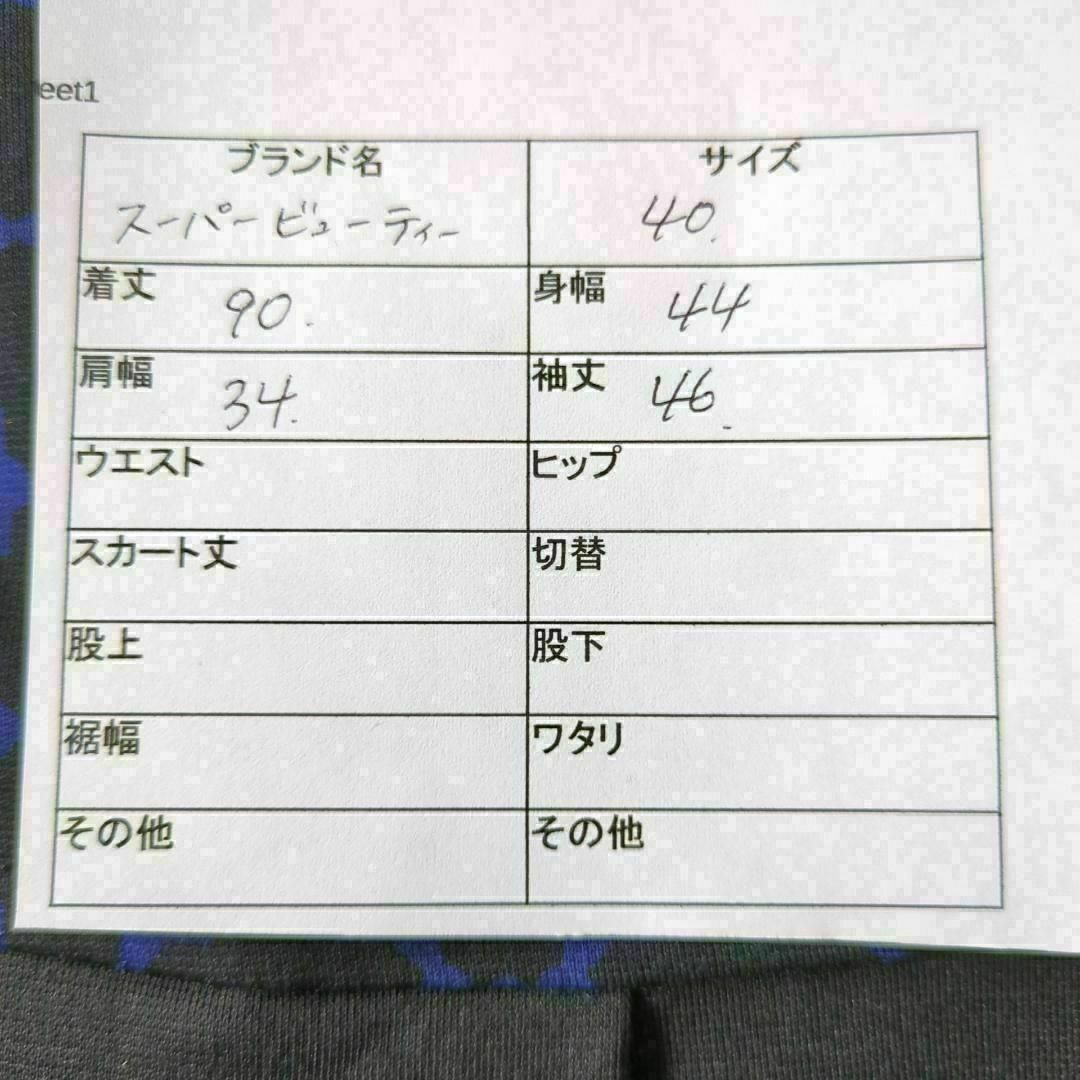 eet1
ブランド名 サイズ
スーパービューティー 40.
着丈 90. 身幅 44
肩幅 34. 袖丈 46.
ウエスト ヒップ
スカート丈 切替
股上 股下
裾幅 ワタリ
その他 その他